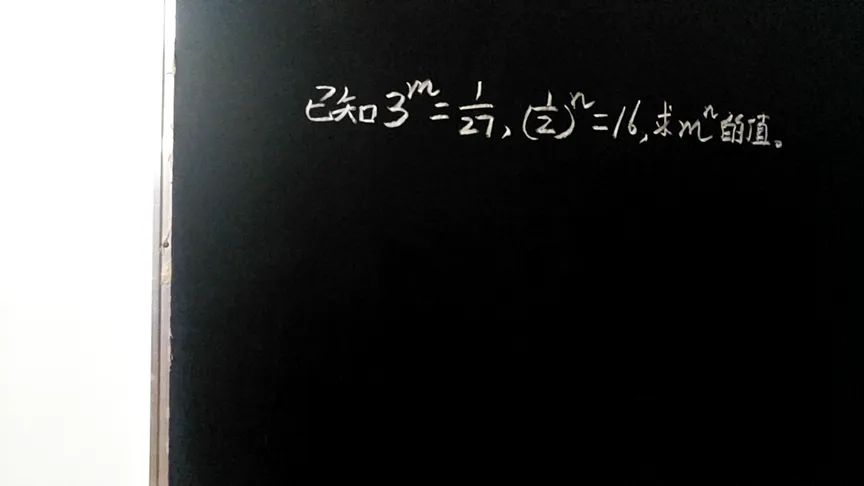 已知3^m=1/27,(1/2)^n=16,求m^n的值。